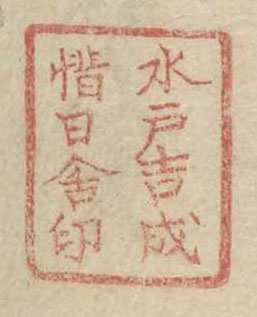 水戸吉成
惜日舎印